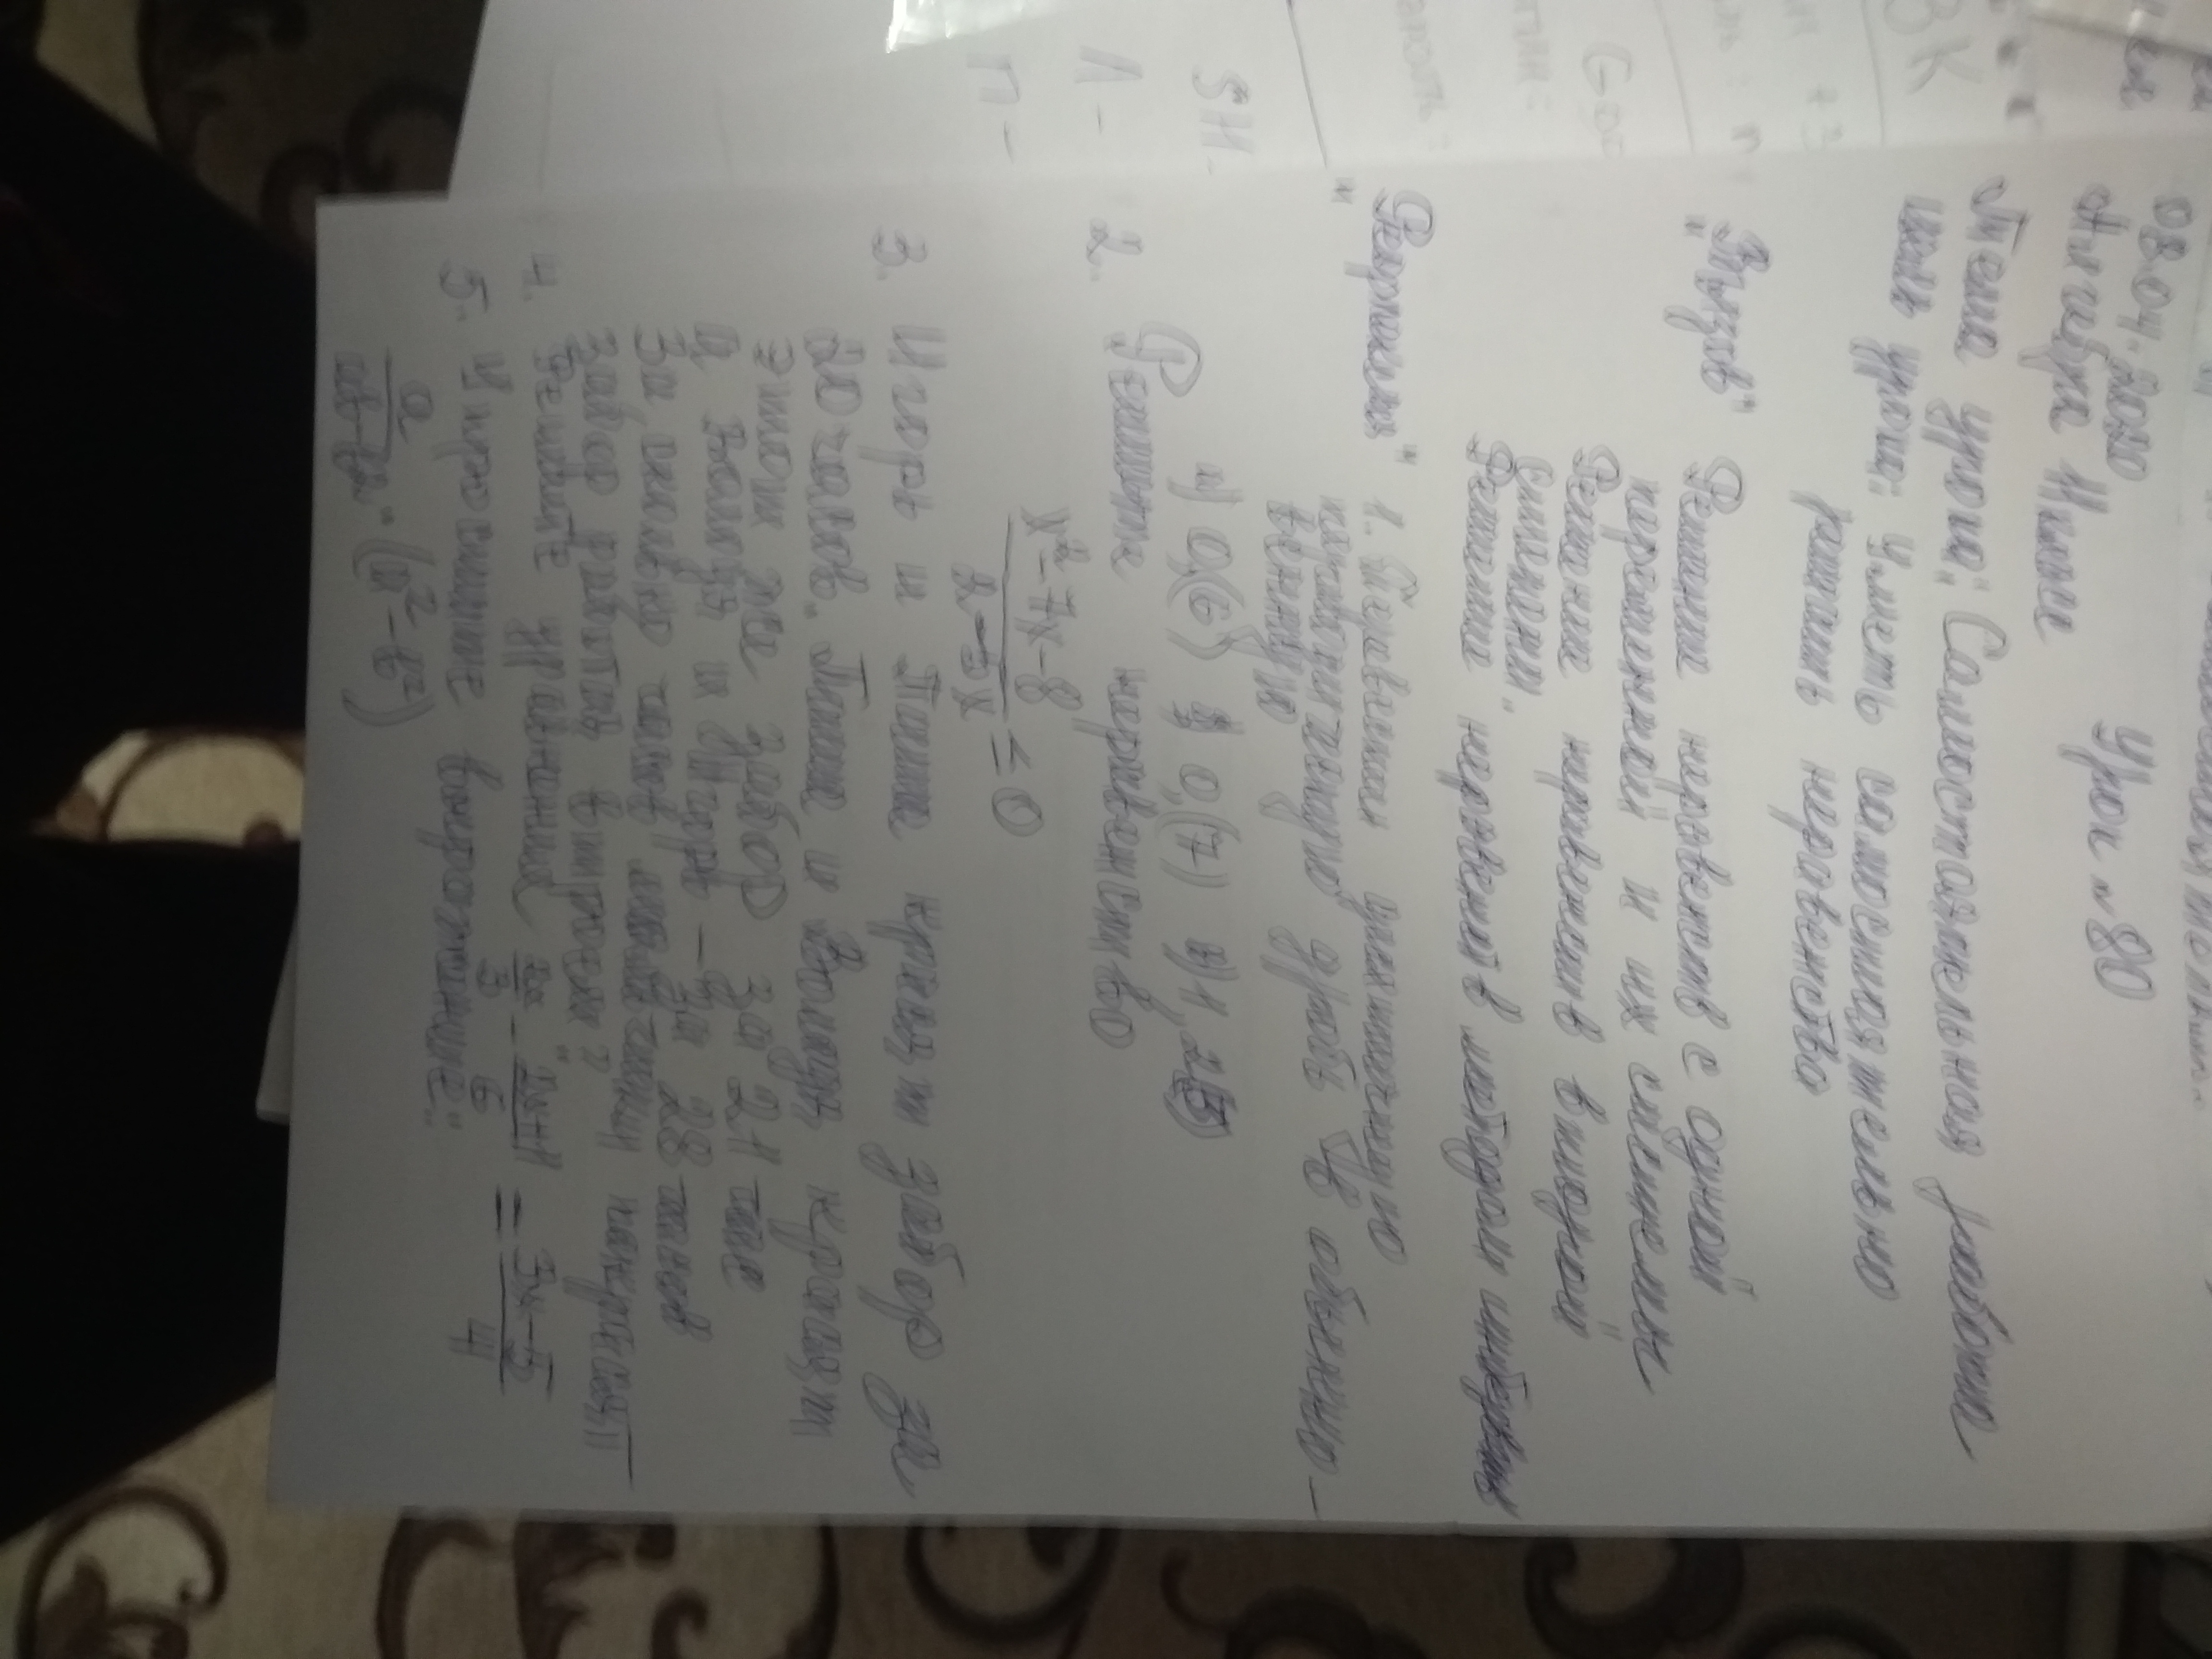 08.04.2020
Алгебра Инже Урок № 80
Тема урока: Самостоятельная работа
Цель урока: Уметь самостоятельно
решать неравенства
"Вызов" Решение неравенств с одной
переменной и их систем
Решение неравенств второй
степени.
Решение неравенств методом интервалов
"Реализ" 1. Бесконечную
периодическую дробь в обыкно-
венную
а) 0,(6) б) 0,(7) в) 1,2(5)
2. Решите неравенство
x²-7x-8
2-5x ≤ 0
3. Игорь и Паша красят забор за
20 часов. Паша и Володя красят
этот же забор за 21 час
а Володя и Игорь – за 28 часов
За сколько часов мальчики покрасят
забор работая втроем?
4. Решите уравнения 2x/3 - 2x+1/6 = 3x-5/4
5. Упростите выражение:
a/ab-b² · (a²-b²)
SH-
Л-
П-
ВК